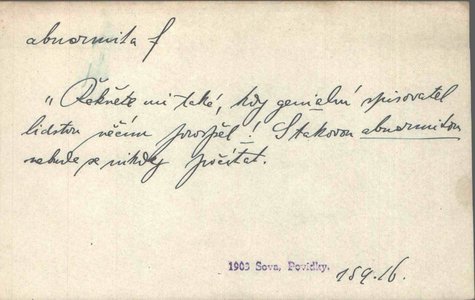 abnormita f
„Řekněte mi také, kdy genielní spisovatel
lidstvu něčím prospěl! S takovou abnormitou
nebude se nikdy počítat.
1903 Sova, Povídky. 159.16.